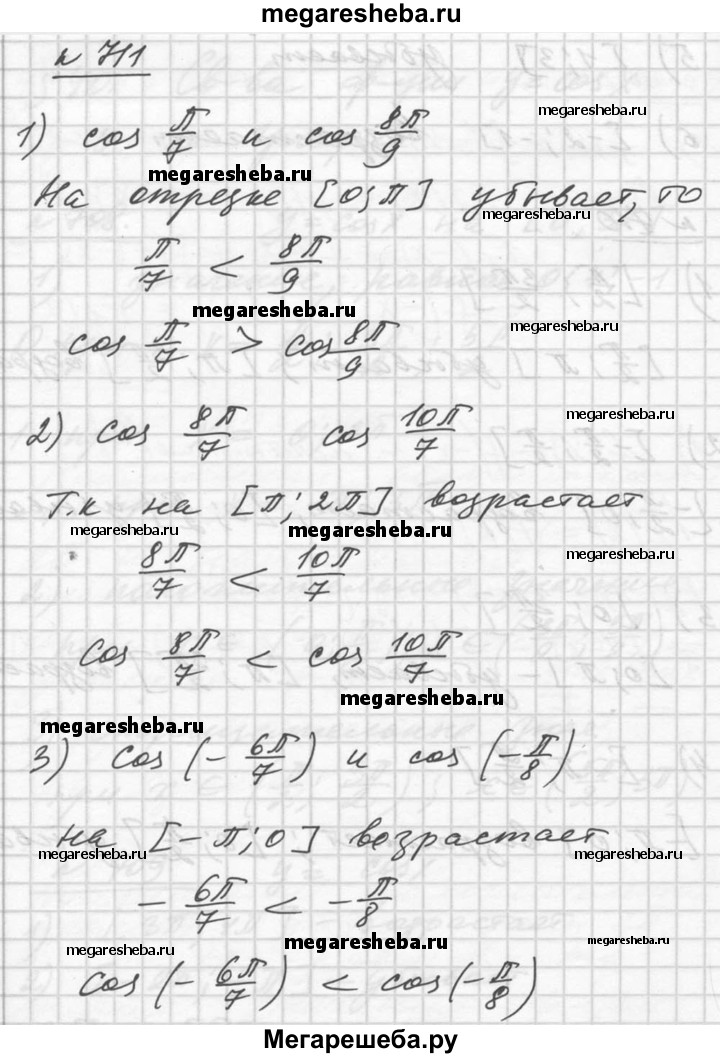 megaresheba.ru
№ 711
1) cos π/7 и cos 8π/9
megaresheba.ru
megaresheba.ru
На отрезке [0;π] убывает, то
megaresheba.ru
π/7 < 8π/9
megaresheba.ru
megaresheba.ru
cos π/7 > cos 8π/9
2) cos 8π/7 cos 10π/7
megaresheba.ru
Т.к на [π; 2π] возрастает
megaresheba.ru
megaresheba.ru
8π/7 < 10π/7
megaresheba.ru
cos 8π/7 < cos 10π/7
megaresheba.ru
megaresheba.ru
3) cos (- 6π/7) и cos (- π/8)
на [-π; 0] возрастает
megaresheba.ru
megaresheba.ru
- 6π/7 < - π/8
megaresheba.ru
megaresheba.ru
megaresheba.ru
cos (- 6π/7) < cos (- π/8)
Мегарешеба.ру